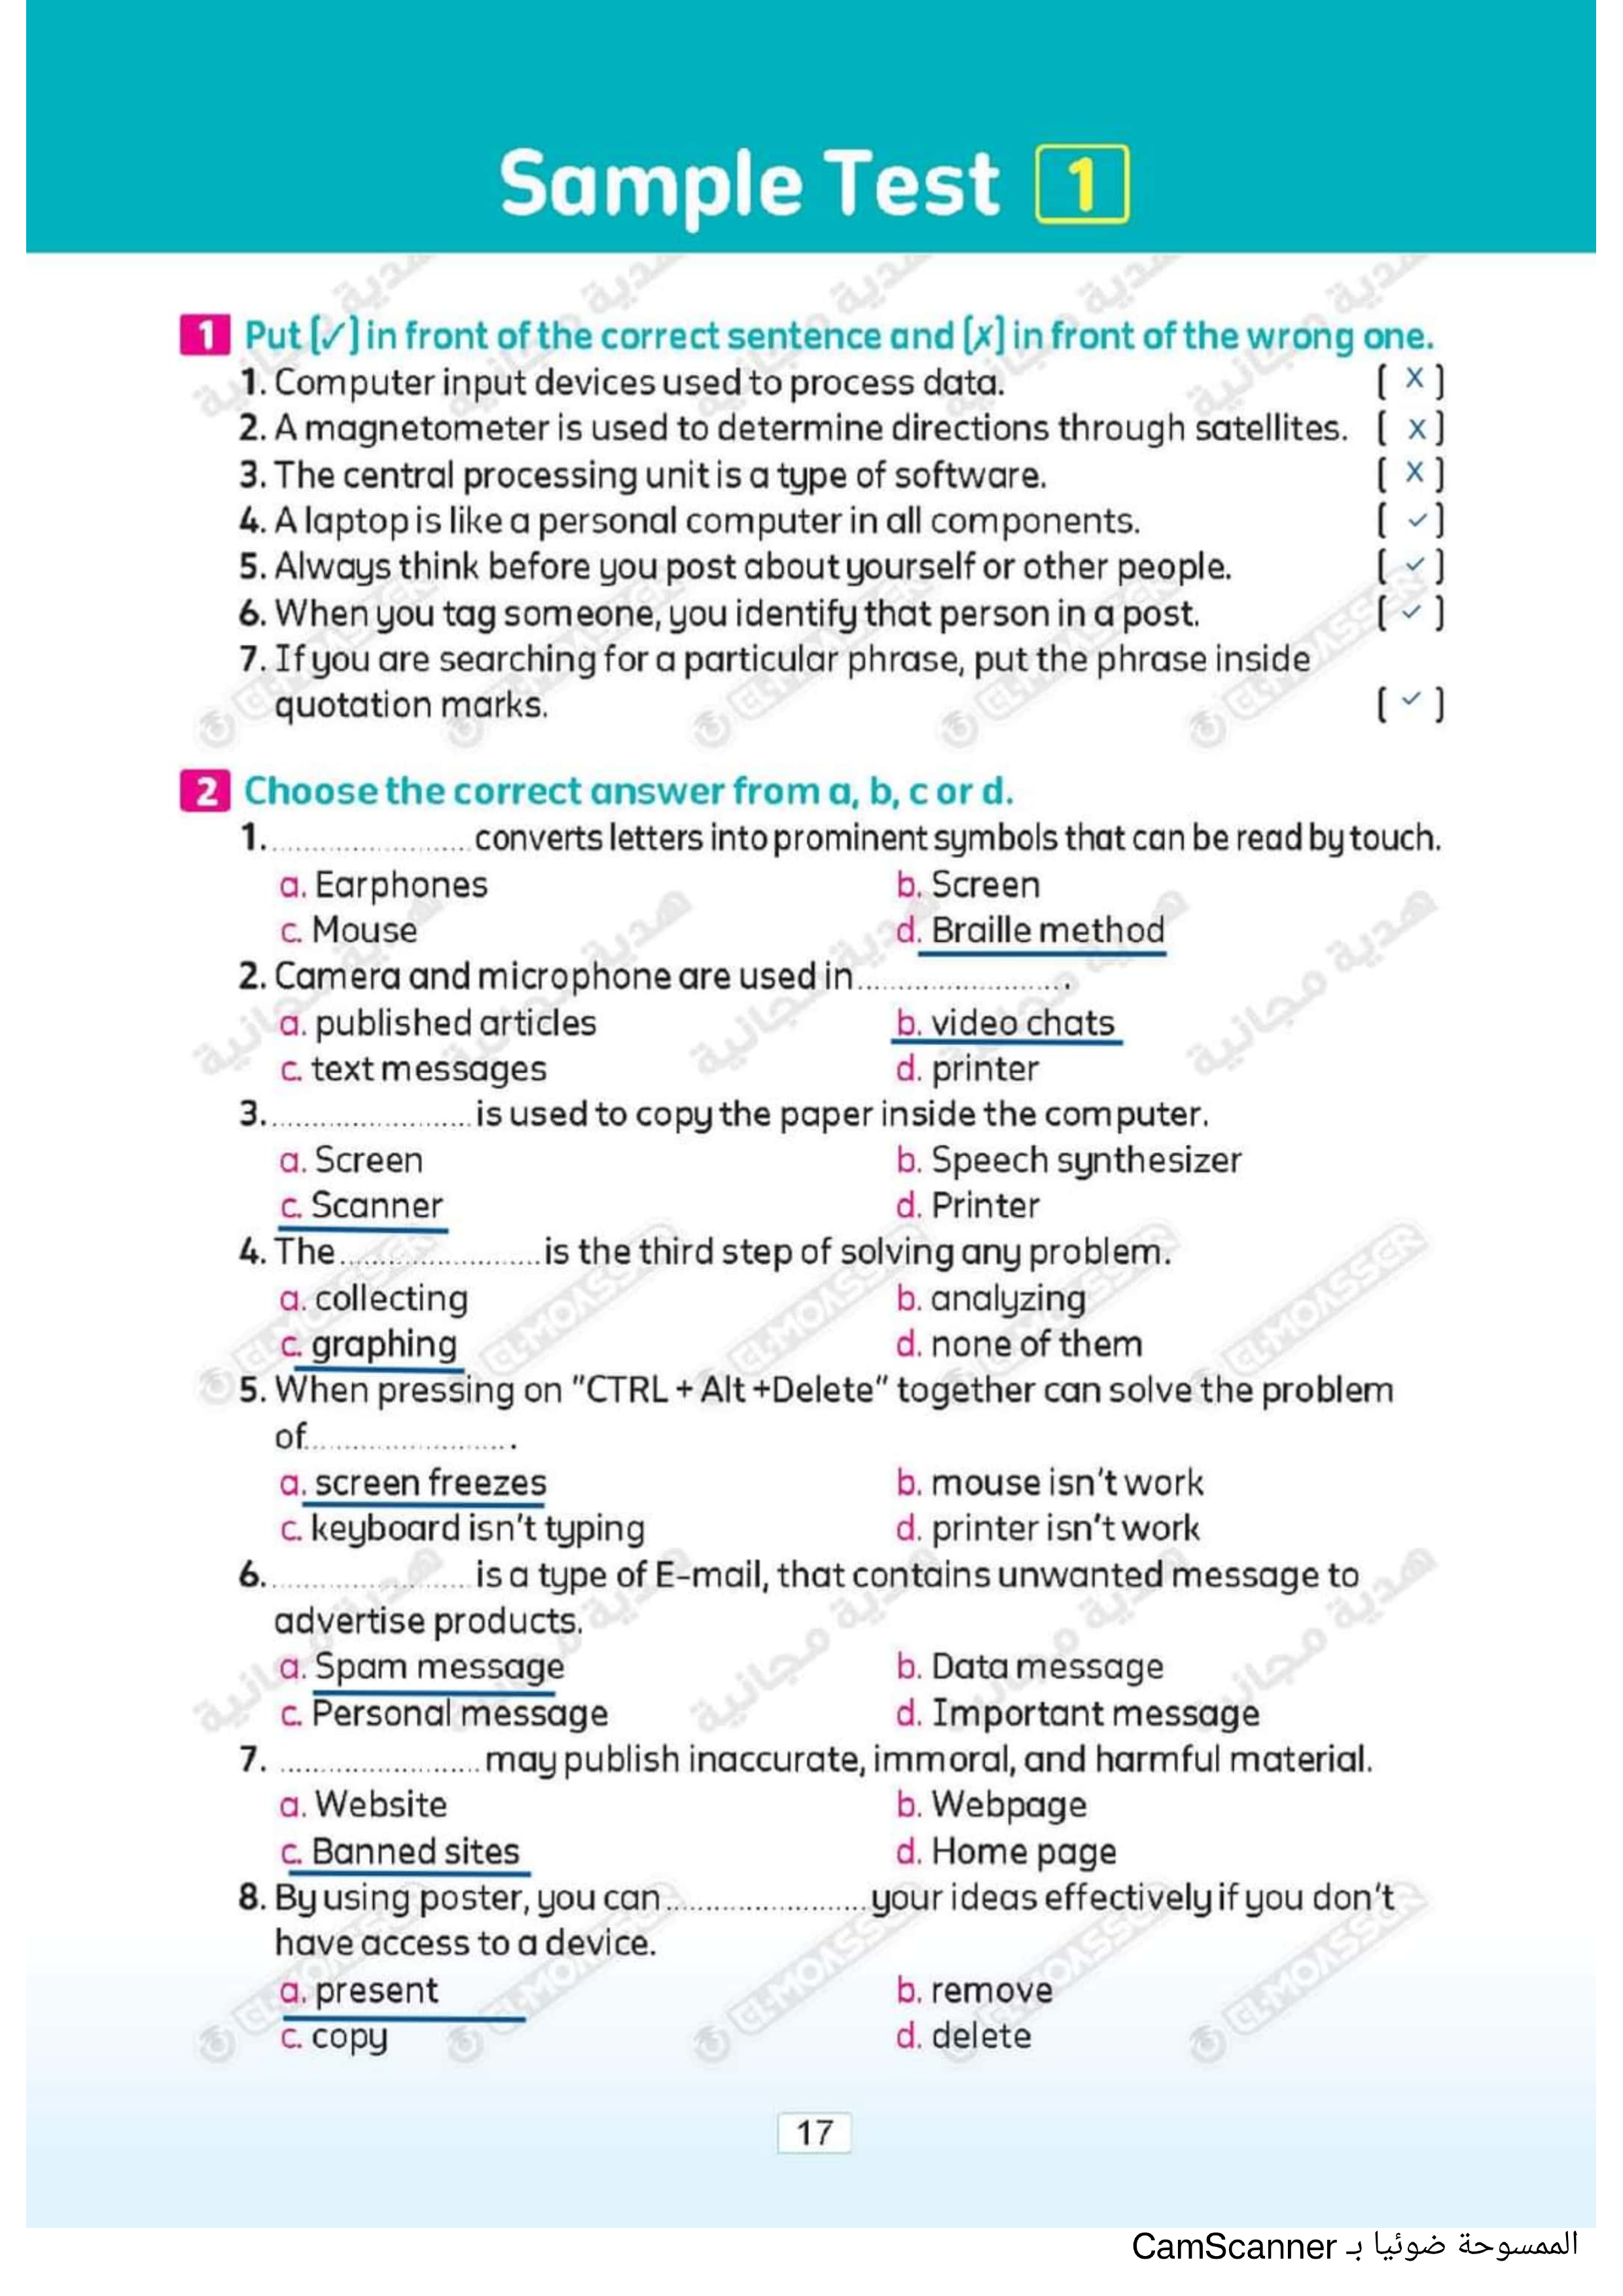 Sample Test 1
1 Put [✓] in front of the correct sentence and [x] in front of the wrong one.
1. Computer input devices used to process data. [ X ]
2. A magnetometer is used to determine directions through satellites. [ X ]
3. The central processing unit is a type of software. [ X ]
4. A laptop is like a personal computer in all components. [ ✓ ]
5. Always think before you post about yourself or other people. [ ✓ ]
6. When you tag someone, you identify that person in a post. [ ✓ ]
7. If you are searching for a particular phrase, put the phrase inside
quotation marks. [ ✓ ]
2 Choose the correct answer from a, b, c or d.
1. ........................ converts letters into prominent symbols that can be read by touch.
a. Earphones b. Screen
c. Mouse d. Braille method
2. Camera and microphone are used in ........................ .
a. published articles b. video chats
c. text messages d. printer
3. ........................ is used to copy the paper inside the computer.
a. Screen b. Speech synthesizer
c. Scanner d. Printer
4. The ........................ is the third step of solving any problem.
a. collecting b. analyzing
c. graphing d. none of them
5. When pressing on "CTRL + Alt +Delete" together can solve the problem
of ........................ .
a. screen freezes b. mouse isn't work
c. keyboard isn't typing d. printer isn't work
6. ........................ is a type of E-mail, that contains unwanted message to
advertise products.
a. Spam message b. Data message
c. Personal message d. Important message
7. ........................ may publish inaccurate, immoral, and harmful material.
a. Website b. Webpage
c. Banned sites d. Home page
8. By using poster, you can ........................ your ideas effectively if you don't
have access to a device.
a. present b. remove
c. copy d. delete
17
الممسوحة ضوئيا بـ CamScanner